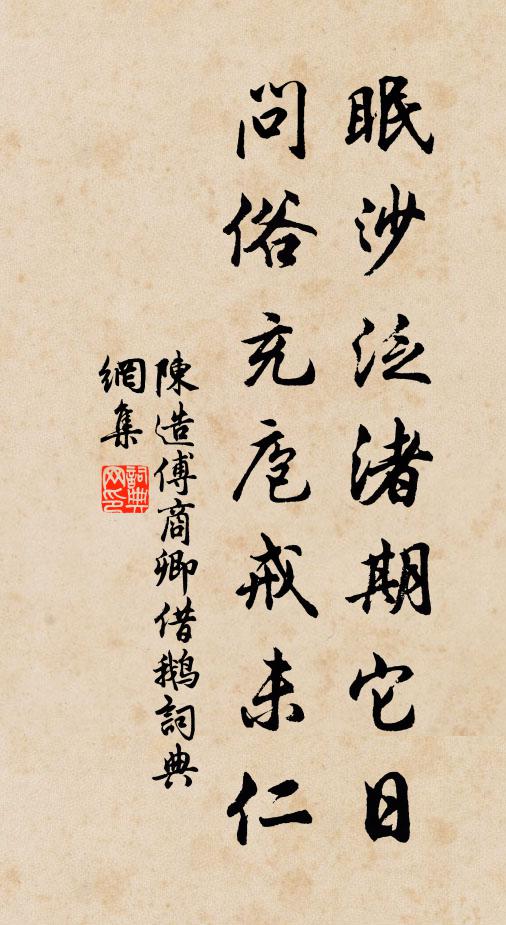 眠沙泛渚期它日
問俗充庖戒未仁
陳造傅商卿借鵝詞典
網集
詞典
网印